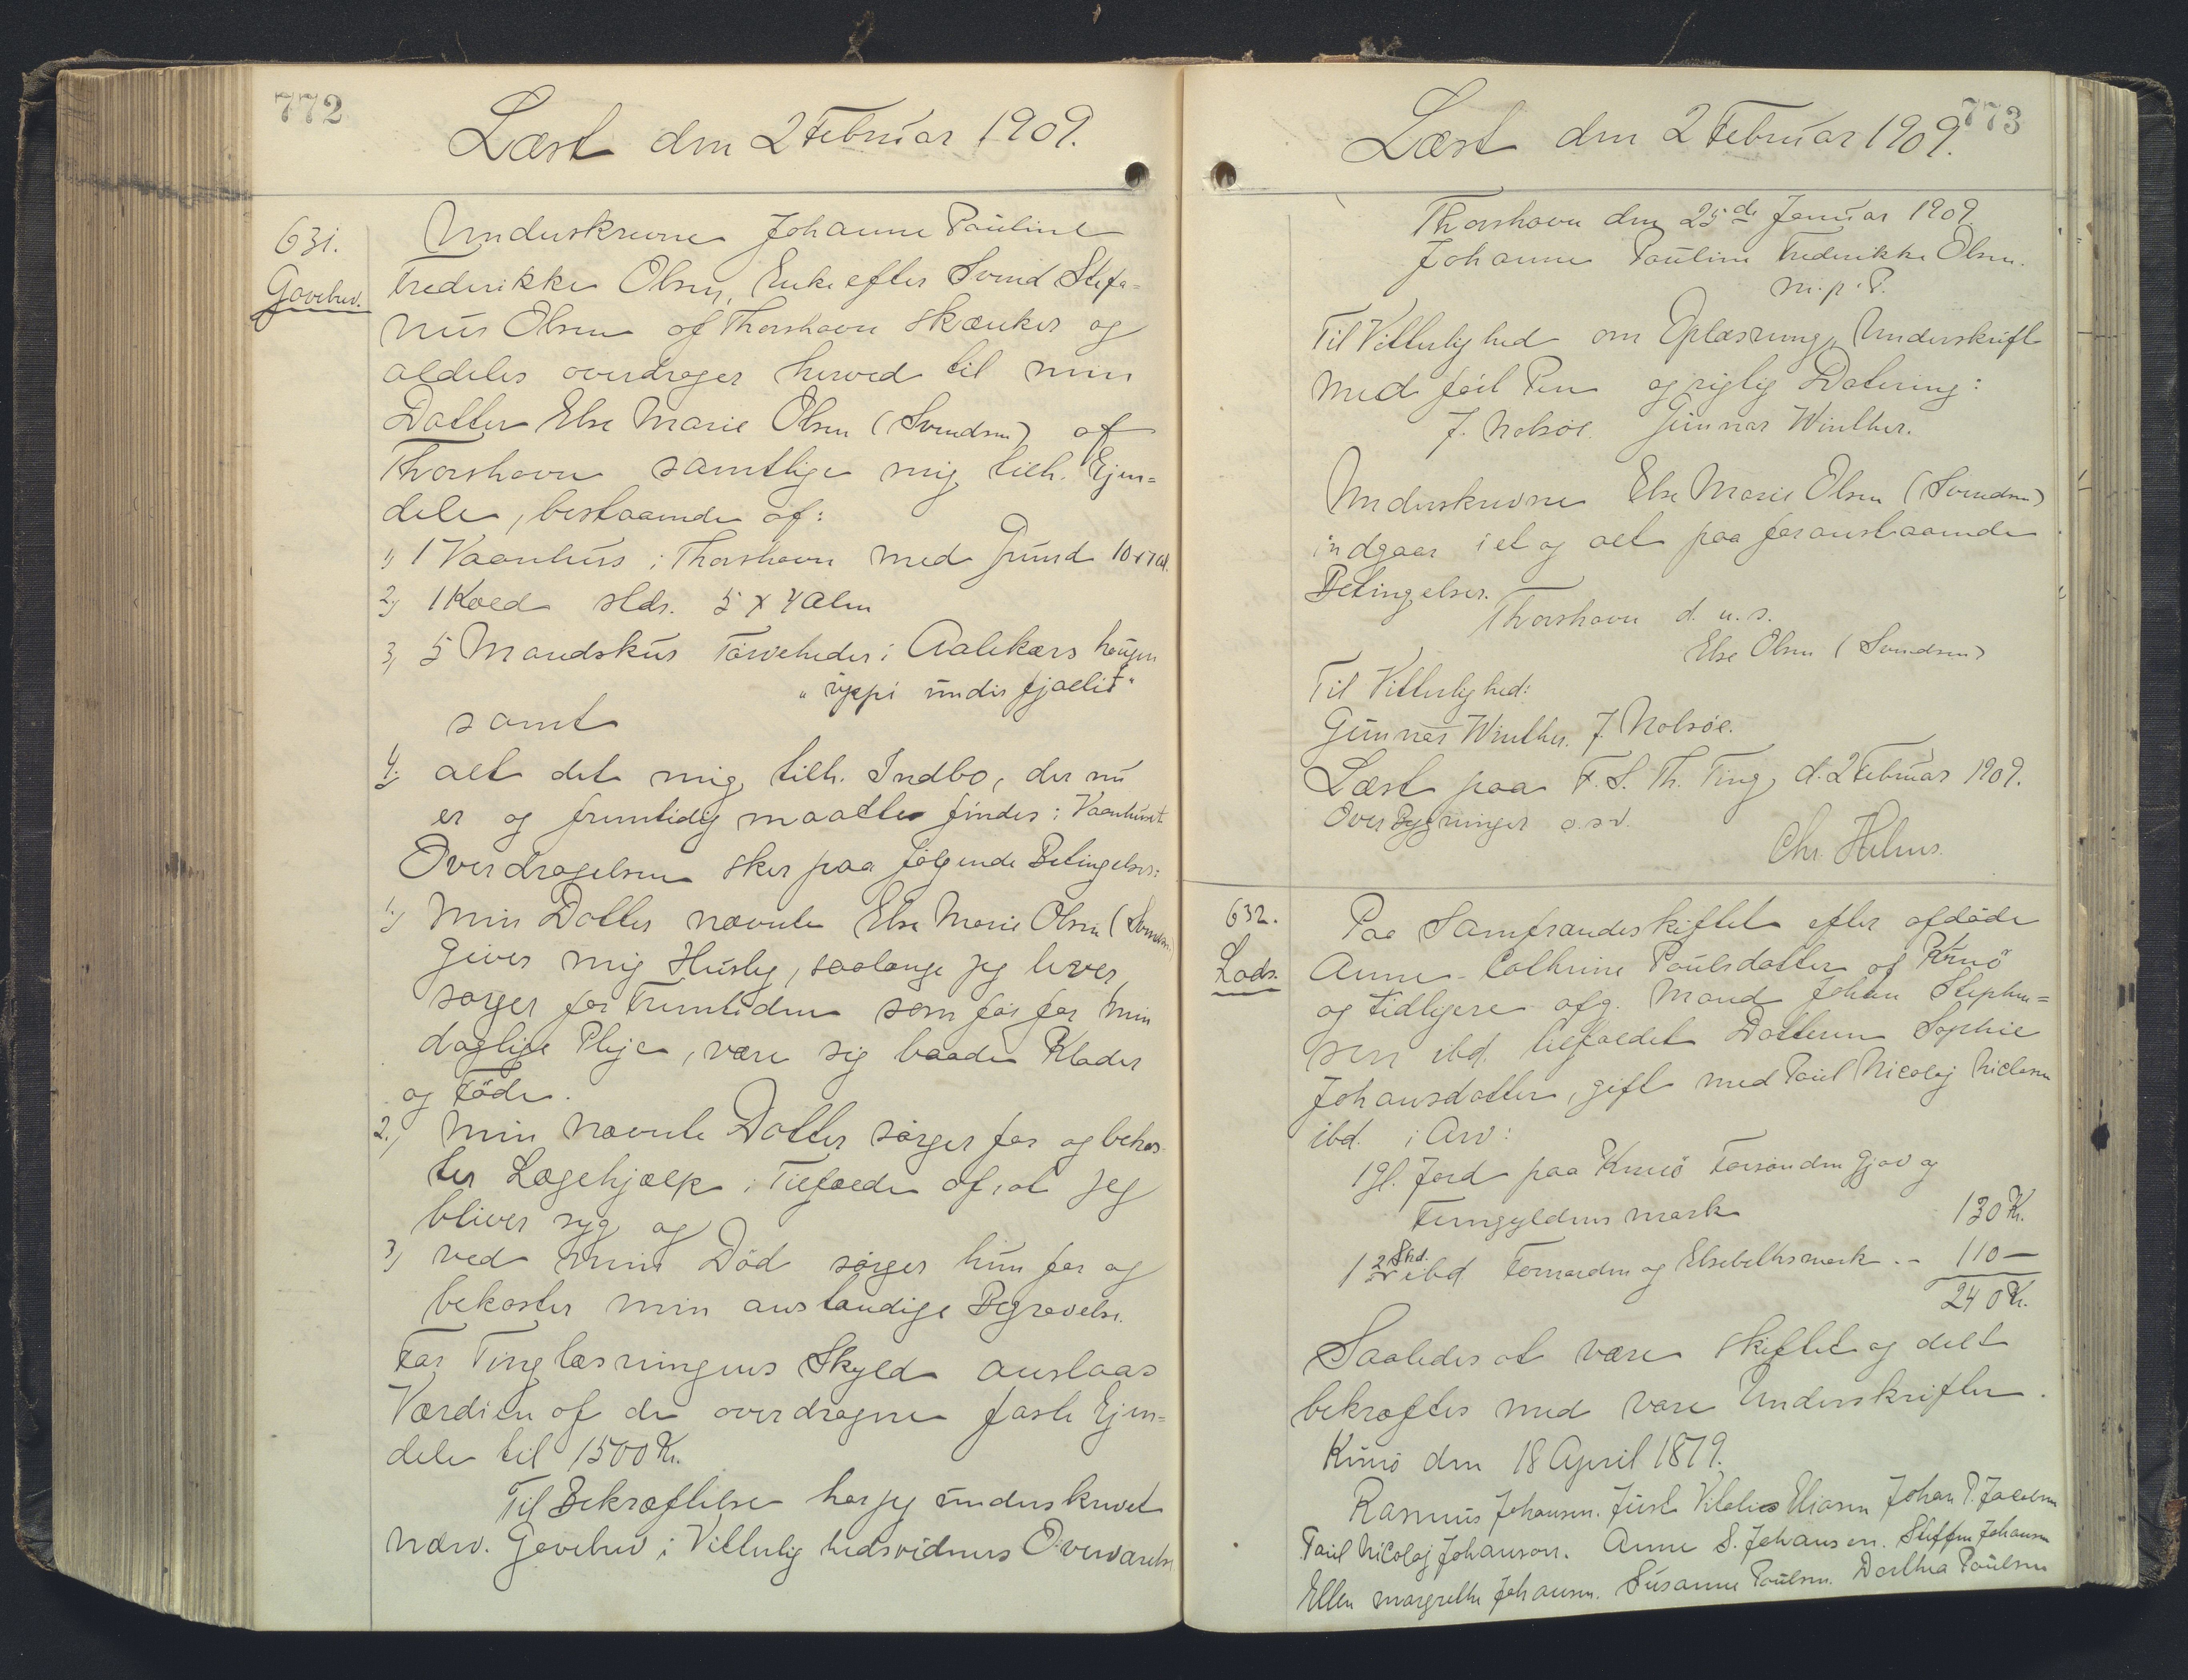 772
Læst den 2 Februar 1909.
631.
Gavebrev.
Underskrevne Johanne Pauline
Frederikke Olsen, Enke efter Svend Stefa-
nus Olsen af Thorshavn skænker og
aldeles overdrager herved til min
Datter Else Marie Olsen (Svendsen) af
Thorshavn samtlige mig tilh. Ejen-
dele, bestaaende af:
1) 1 Vaanhus i Thorshavn med Grund 10x7 al.
2) 1 Kold sldr. 5 x 4 Alen
3) 5 Mandskus Tørveheder i Aalekærs haugen
" uppi undir fjælit"
samt
4) alt det mig tilh. Indbo, der nu
er og fremtidig maatte findes i Vaanhuset
Overdragelsen sker paa følgende Betingelser:
1.) Min Datter nævnte Else Marie Olsen (Svendsen)
giver mig Husly, saalænge jeg lever,
sørger for Fremtiden som før for min
daglige Pleje, være sig baade Klæder
og Føde.
2.) Min nævnte Datter sørger for og bekos-
ter Lægehjælp i Tilfælde af, at jeg
bliver syg og
3) ved min Død sørger hun for og
bekoster min anstændige Begravelse.
For Tinglæsningens Skyld anslaas
Værdien af de overdragne faste Ejen-
dele til 1500 Kr.
Til Bekræftelse har jeg underskrevet
nærv. Gavebrev i Vitterlighedsvidners Overværelse
773
Læst den 2 Februar 1909.
Thorshavn den 25de Januar 1909.
Johanne Pauline Frederikke Olsen.
m. p. P.
Til Vitterlighed om Oplæsning, Underskrift
med ført Pen og rigtig Datering:
J. Nolsøe. Gunnar Winther.
Underskrevne Else Marie Olsen (Svendsen)
indgaar i et og alt paa foranstaaende
Betingelser.
Thorshavn d. u. s.
Else Olsen (Svendsen)
Til Vitterlighed:
Gunnar Winther. J. Nolsøe.
Læst paa F. S. Th. Ting, d. 2 Februar 1909.
Over Bygninger o.s.v.
Chr. Helms.
632.
Lods.
Paa Samfrændeskiftet efter afdøde
Anne Cathrine Poulsdatter af Kunø
og tidligere afg. Mand Johan Stephen-
sen ibd. tilfaldet Datteren Sophie
Johansdatter, gift med Poul Nicolaj Niclasen
ibd. i Arv:
1 gl. Jord paa Kunø Forsønden Gjov og
Femgyldens mark 130 Kr.
1 2/5 Skd. ibd Fornorden og Elsebethsmark .- 110 —
240 Kr.
Saaledes at være skiftet og delt
bekræftes med vore Underskrifter.
Kunø den 18 April 1879.
Rasmus Johansen. Just Vitalis Eliasen Johan P. Jacobsen
Poul Nicolaj Johansen. Anne S. Johansen. Steffen Johansen
Ellen Margrethe Johansen. Susanne Poulsen. Dorthea Poulsen